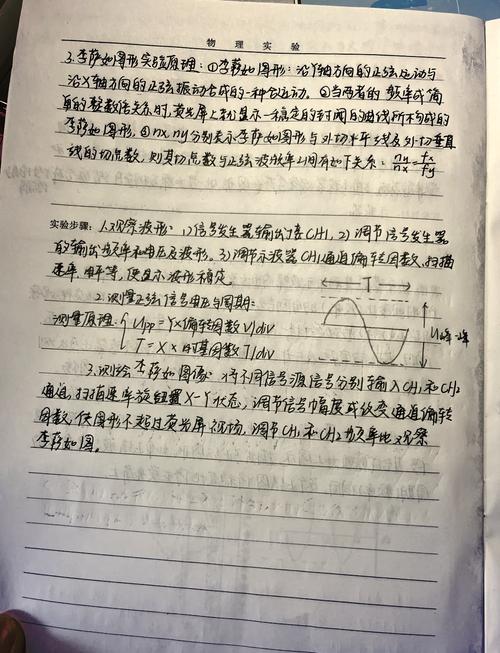 物 理 实 验
3.李萨如图形实验原理:①李萨如图形:沿Y轴方向的正弦运动与
沿X轴方向的正弦振动合成的一种合运动。②当两者的频率成简
单的整数倍关系时,荧光屏上就显示一稳定的封闭的曲线所构成的
李萨如图形。③nx,ny分别表示李萨如图形与外切水平线及外切垂直
线的切点数,则其切点数与正弦波频率之间有如下关系:ny/nx=fx/fy
实验步骤:1.观察波形:1)信号发生器输出接CH1,2)调节信号发生器
的输出频率和电压及波形。3)调节示波器CH1通道偏转因数、扫描
速率、电平等,使显示波形稳定。
T
2.测量正弦信号电压与周期:
测量原理:{Upp=Y×偏转因数V/div
U峰-峰
T=X×时基因数T/div
3.测绘李萨如图像 将不同信号源信号分别输入CH1和CH2
通道,扫描速率旋钮置X-Y状态,调节信号幅度或改变通道偏转
因数,使图形不超过荧光屏视场,调节CH1和CH2频率比观察
李萨如图。